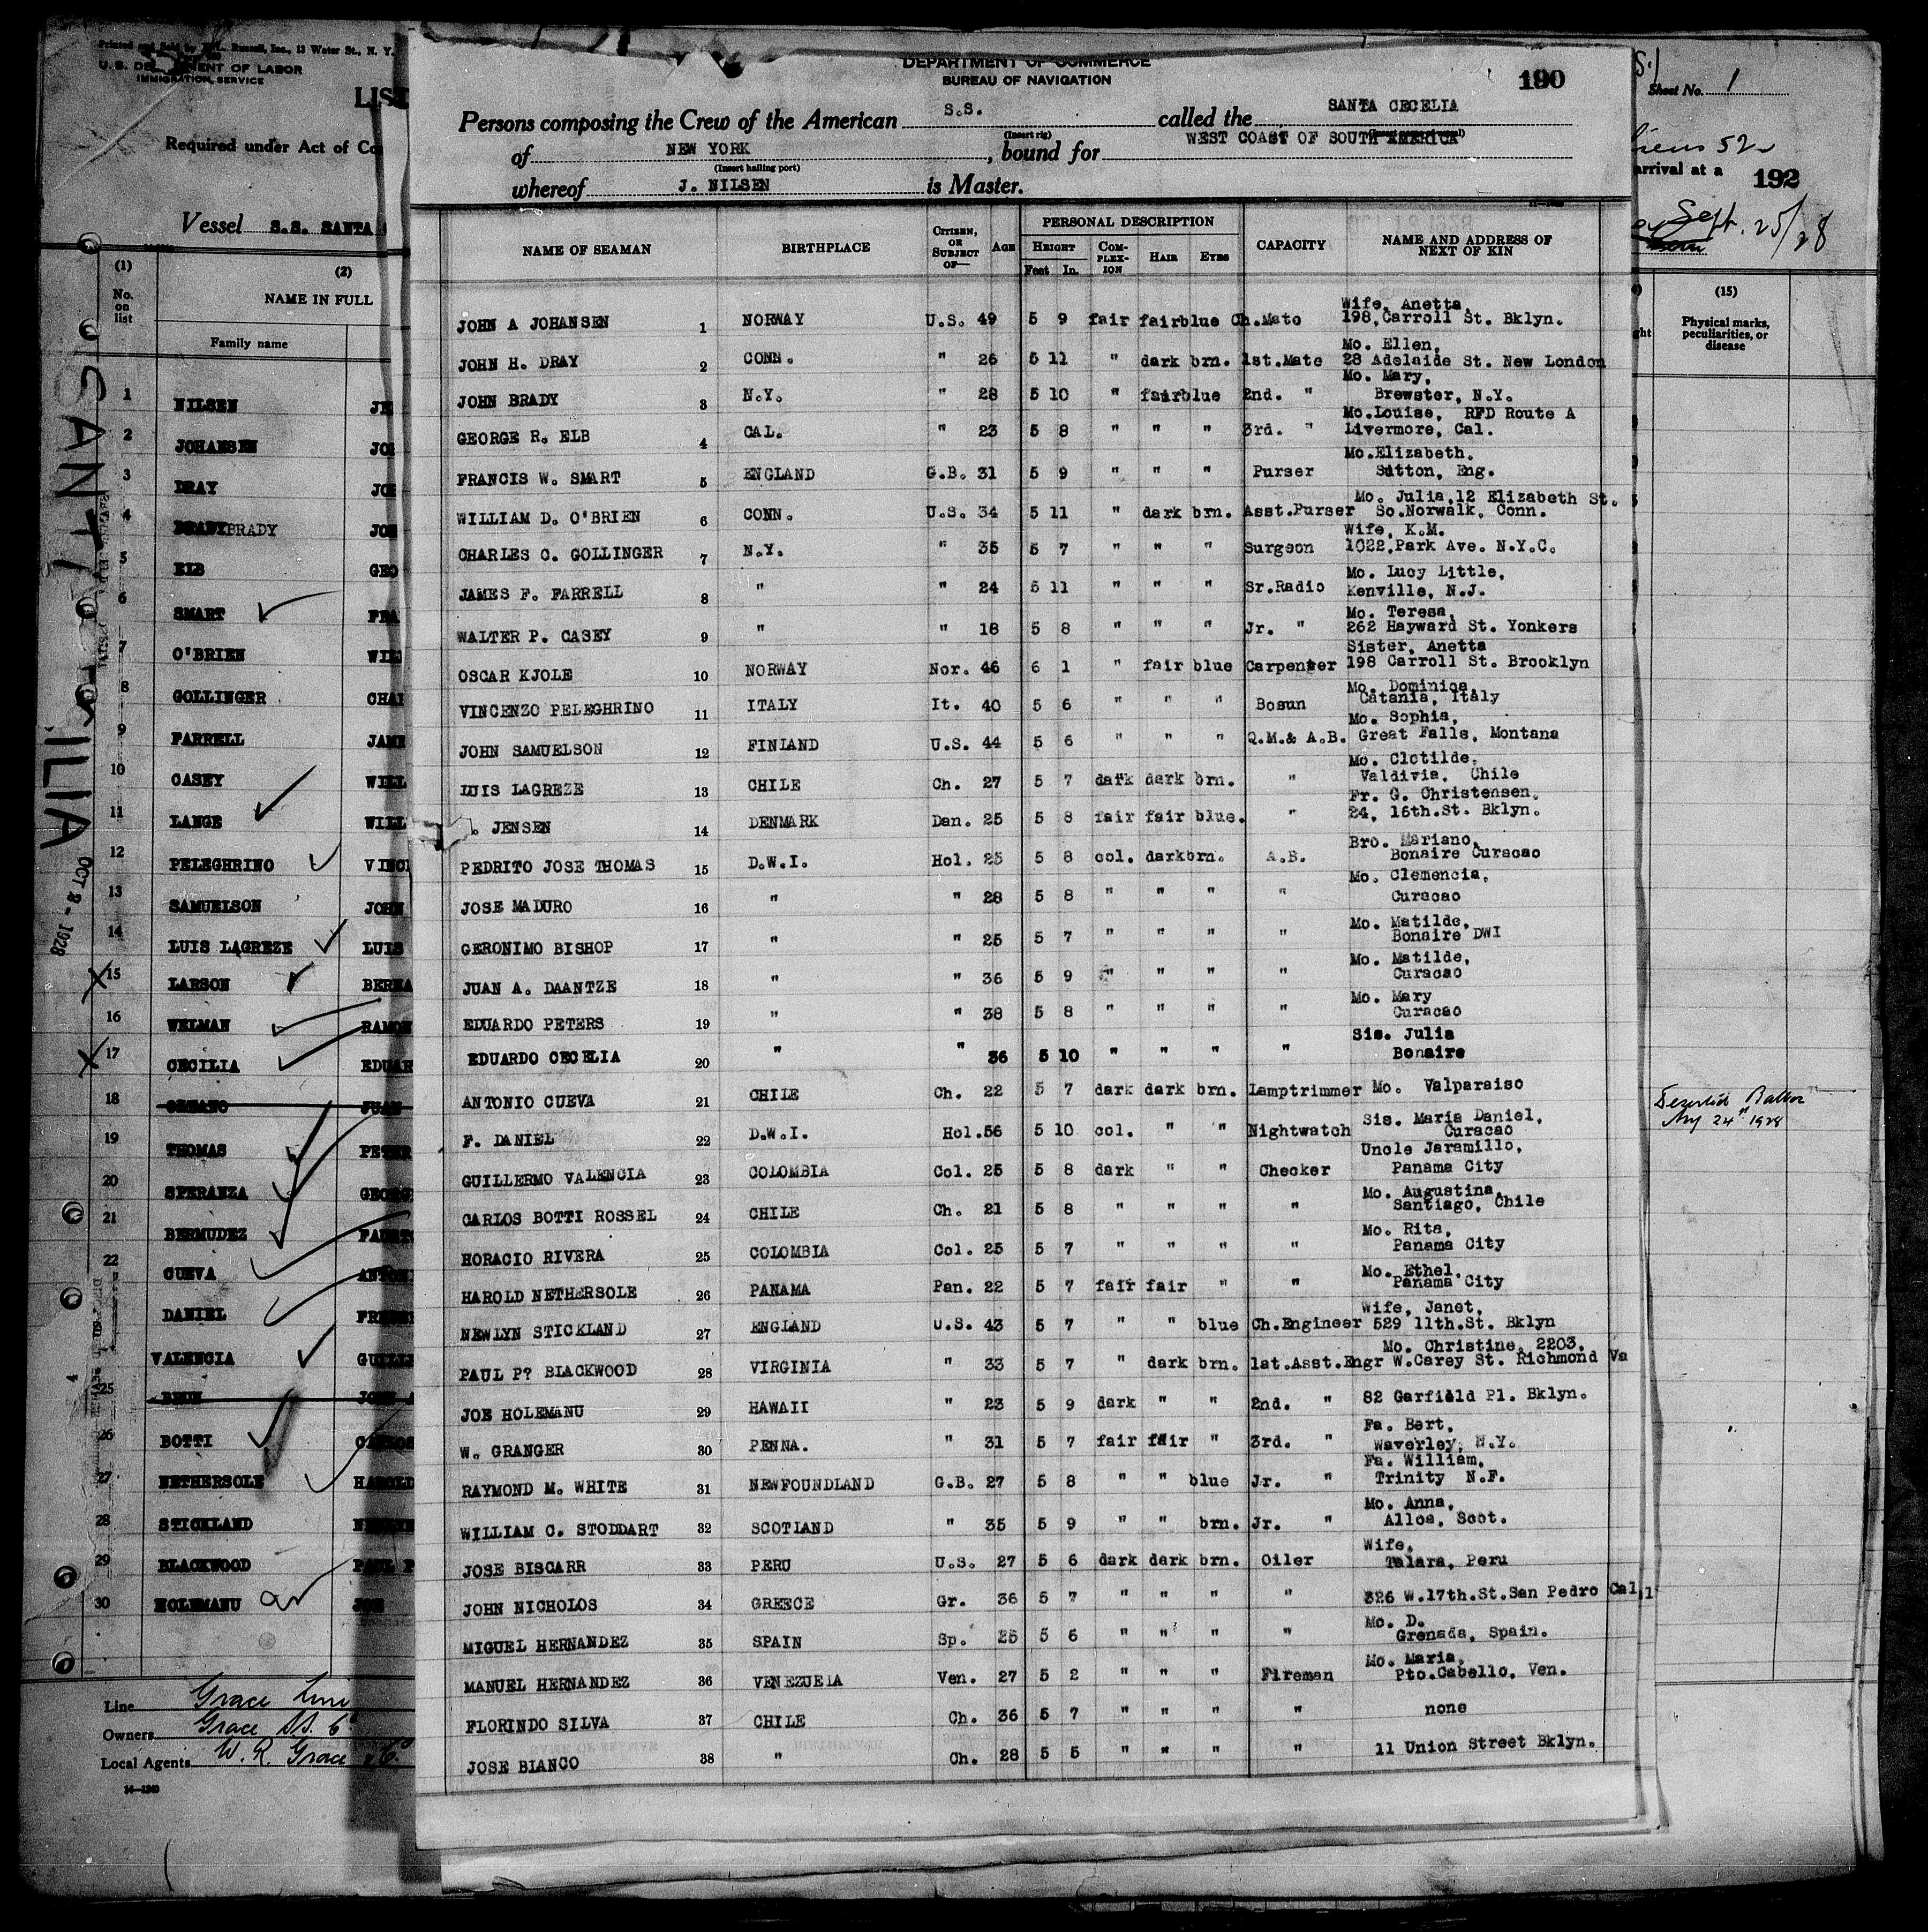 Printed and Sold by Russell, Inc., 13 Water St., N. Y.
U. S. DEPARTMENT OF LABOR
IMMIGRATION SERVICE
LIST
Required under Act of
Vessel S.S. SANTA
(1) (2)
No. on list
NAME IN FULL
Family name
1 NILSEN
2 JOHANSEN JO
3 DRAY JO
4 BRADY JO
5 ELB GEO
6 SMART FRA
7 O'BRIEN WIL
8 GOLLINGER CHA
9 FARRELL JAME
10 CASEY WILL
11 LANGE WILL
12 PELEGHRINO VINC
13 SAMUELSON JOHN
14 LUIS LAGREZE LUIS
15 LARSON BERNA
16 WELMAN RAMON
17 CECILIA EDUAR
18 JUAN
19 THOMAS PETER
20 SPERANZA GEORG
21 BERMUDEZ FAUSTO
22 CUEVA ANTONI
DANIEL
VALENCIA GUILL
25 JOSE A
26 BOTTI CARLOS
27 NETHERSOLE HAROLD
28 STICKLAND NEWLYN
29 BLACKWOOD PAUL P
30 HOLEMANU JOE
Line Grace Line
Owners Grace SS. Co
Local Agents W. R. Grace & Co
14-1240
OCT 2 - 1928
DEPARTMENT OF COMMERCE
BUREAU OF NAVIGATION
190
Persons composing the Crew of the American S.S. called the SANTA CECELIA
(Insert rig)
of NEW YORK, bound for WEST COAST OF SOUTH AMERICA
(Insert hailing port)
whereof J. NILSEN is Master.
NAME OF SEAMAN BIRTHPLACE CITIZEN, OR SUBJECT OF— AGE PERSONAL DESCRIPTION CAPACITY NAME AND ADDRESS OF NEXT OF KIN
HEIGHT COMPLEXION HAIR EYES
Feet In.
JOHN A JOHANSEN 1 NORWAY U.S. 49 5 9 fair fair blue Ch.Mate Wife, Anetta, 198,Carroll St. Bklyn.
JOHN H. DRAY 2 CONN. " 26 5 11 " dark brn. 1st.Mate Mo. Ellen, 28 Adelaide St. New London
JOHN BRADY 3 N.Y. " 28 5 10 " fair blue 2nd. " Mo. Mary, Brewster, N.Y.
GEORGE R. ELB 4 CAL. " 23 5 8 " " " 3rd. " Mo.Louise, RFD Route A Livermore, Cal.
FRANCIS W. SMART 5 ENGLAND G.B. 31 5 9 " " " Purser Mo.Elizabeth. Sutton, Eng.
WILLIAM D. O'BRIEN 6 CONN. U.S. 34 5 11 " dark brn. Asst.Purser Mo. Julia,12 Elizabeth St. So.Norwalk, Conn.
CHARLES C. GOLLINGER 7 N.Y. " 35 5 7 " " " Surgeon Wife, K.M. 1022,Park Ave. N.Y.C.
JAMES F. FARRELL 8 " " 24 5 11 " " " Sr.Radio Mo. Lucy Little, Kenville, N.J.
WALTER P. CASEY 9 " " 18 5 8 " " " Jr. " Mo. Teresa, 262 Hayward St. Yonkers
OSCAR KJOLE 10 NORWAY Nor. 46 6 1 " fair blue Carpenter Sister, Anetta 198 Carroll St. Brooklyn
VINCENZO PELEGHRINO 11 ITALY It. 40 5 6 " " " Bosun Mo. Dominica, Catania, Italy
JOHN SAMUELSON 12 FINLAND U.S. 44 5 6 " " " Q.M.& A.B. Mo. Sophia, Great Falls, Montana
LUIS LAGREZE 13 CHILE Ch. 27 5 7 dark dark brn. " Mo. Clotilde, Valdivia, Chile
. JENSEN 14 DENMARK Dan. 25 5 8 fair fair blue. " Fr. G. Christensen, 24, 16th.St. Bklyn.
PEDRITO JOSE THOMAS 15 D.W.I. Hol. 25 5 8 col. dark brn. A.B. Bro. Mariano, Bonaire Curacao
JOSE MADURO 16 " " 28 5 8 " " " " Mo. Clemencia, Curacao
GERONIMO BISHOP 17 " " 25 5 7 " " " " Mo. Matilde, Bonaire DWI
JUAN A. DAANTZE 18 " " 36 5 9 " " " " Mo. Matilde, Curacao
EDUARDO PETERS 19 " " 38 5 8 " " " " Mo. Mary Curacao
EDUARDO CECELIA 20 " " 36 5 10 " " " " Sis. Julia Bonaire
ANTONIO CUEVA 21 CHILE Ch. 22 5 7 dark dark brn. Lamptrimmer Mo. Valparaiso
F. DANIEL 22 D.W.I. Hol. 56 5 10 col. " " Nightwatch Sis. Maria Daniel, Curacao
GUILLERMO VALENCIA 23 COLOMBIA Col. 25 5 8 dark " " Checker Uncle Jaramillo, Panama City
CARLOS BOTTI ROSSEL 24 CHILE Ch. 21 5 8 " " " " Mo. Augustina, Santiago, Chile
HORACIO RIVERA 25 COLOMBIA Col. 25 5 7 " " " " Mo. Rita, Panama City
HAROLD NETHERSOLE 26 PANAMA Pan. 22 5 7 fair fair " " Mo. Ethel, Panama City
NEWLYN STICKLAND 27 ENGLAND U.S. 43 5 7 " " blue Ch.Engineer Wife, Janet, 529 11th.St. Bklyn
PAUL P? BLACKWOOD 28 VIRGINIA " 33 5 7 " dark brn. 1st.Asst.Engr Mo. Christine, 2203, W.Carey St. Richmond Va
JOE HOLEMANU 29 HAWAII " 23 5 9 dark " " 2nd. " 82 Garfield Pl. Bklyn.
W. GRANGER 30 PENNA. " 31 5 7 fair fair " 3rd. " Fa. Bert, Waverley, N.Y.
RAYMOND M. WHITE 31 NEWFOUNDLAND G.B. 27 5 8 " " blue Jr. " Fa. William, Trinity N.F.
WILLIAM C. STODDART 32 SCOTLAND " 35 5 9 " " brn. Jr. " Mo. Anna, Alloa, Scot.
JOSE BISCARR 33 PERU U.S. 27 5 6 dark dark brn. Oiler Wife, Talara, Peru
JOHN NICHOLOS 34 GREECE Gr. 36 5 7 " " " " 326 W.17th.St.San Pedro Cal
MIGUEL HERNANDEZ 35 SPAIN Sp. 25 5 6 " " " " Mo. D. Grenada, Spain.
MANUEL HERNANDEZ 36 VENEZUELA Ven. 27 5 2 " " " Fireman Mo. Maria, Pto.Cabello, Ven.
FLORINDO SILVA 37 CHILE Ch. 36 5 7 " " " " none
JOSE BIANCO 38 " Ch. 28 5 5 " " " " 11 Union Street Bklyn.
Sheet No. 1
52
arrival at a 192
Sept. 25/28
(15)
Physical marks, peculiarities, or disease
Deserted Balboa
Aug 24th 1928